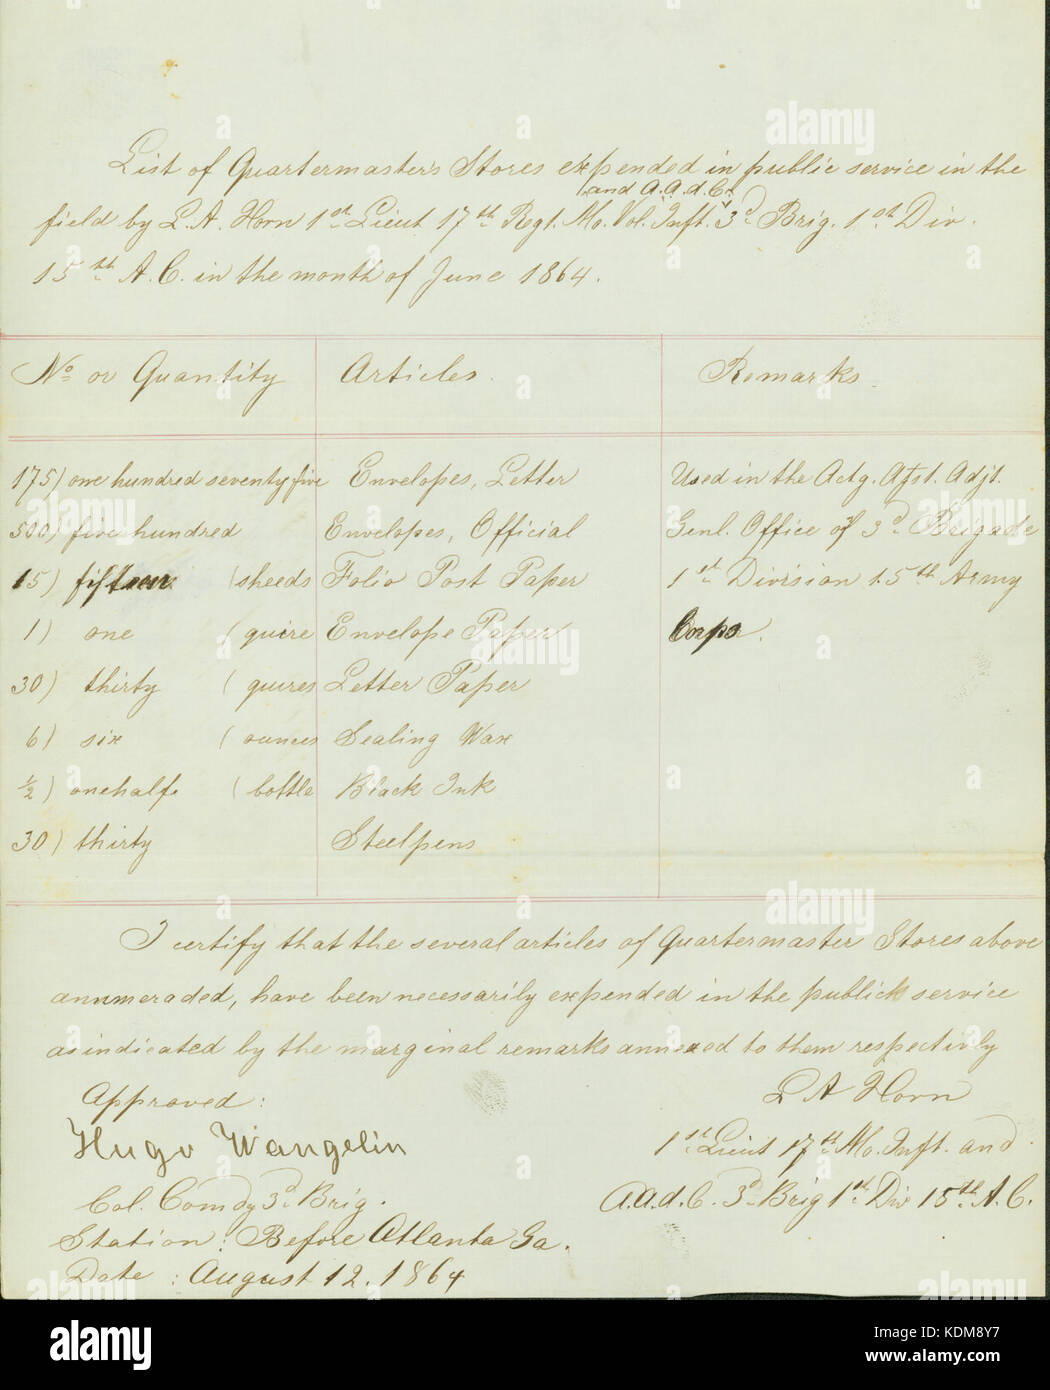 List of Quartermaster's Stores expended in public service in the
and A.A.d.C.
field by L.A. Horn 1st Lieut 17th Regt. Mo. Vol. Inft. 3d Brig. 1st Div.
15th A.C. in the month of June 1864.
No or Quantity Articles. Remarks.
175) one hundred seventy five Envelopes, Letter Used in the Actg. Asst. Adjt.
500) five hundred Envelopes, Official Genl. Office of 3d Brigade
15) fifteen (sheeds Folio Post Paper 1st Division 15th Army
1) one (quire Envelope Paper Corps.
30) thirty (quires Letter Paper
6) six (ounces Sealing Wax
½) onehalf (bottle Black Ink
30) thirty Steelpens
I certify that the several articles of Quartermaster Stores above
annumeraded, have been necessarily expended in the publick service
as indicated by the marginal remarks annexed to them respectivly
Approved: L A Horn
Hugo Wangelin 1st Lieut 17th Mo. Inft. and
Col. Comdg 3d Brig. A.a.d.C. 3d Brig 1st Div 15th A.C.
Station: Before Atlanta Ga.
Date: August 12. 1864
alamy
a
alamy
Image ID: KDM8Y7
www.alamy.com